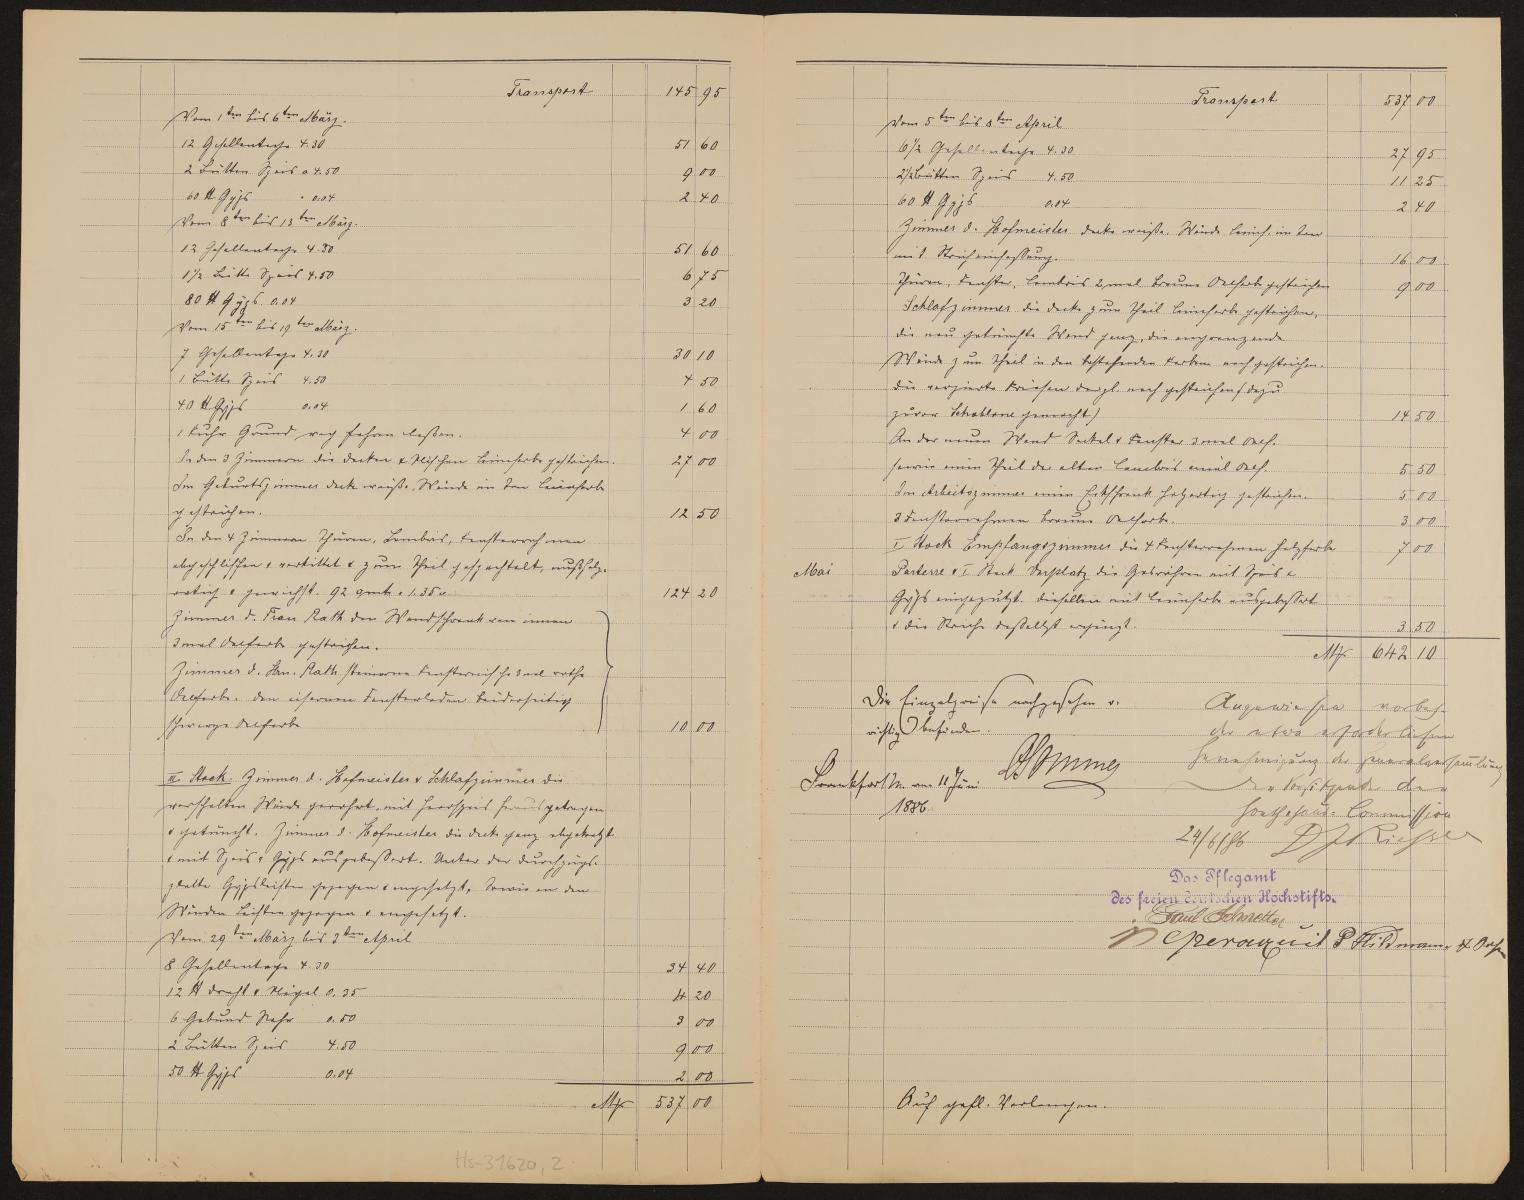 Transport 145 95
Vom 1ten bis 6ten März.
12 Gesellentage 4.30 51 60
2 Bütten Speis a 4.50 9 00
60 ℔ Gyps " 0.04 2 40
Vom 8ten bis 13ten März.
12 Gesellentage 4.30 51 60
1½ Bütte Speis 4.50 6 75
80 ℔ Gyps 0.04 3 20
Vom 15ten bis 19ten März.
7 Gesellentage 4.30 30 10
1 Bütte Speis 4.50 4 50
40 ℔ Gyps 0.04 1 60
1 Fuhr Grund weg fahren laßen. 4 00
In den 3 Zimmern die Decken & Nischen Leimfarbe gestrichen. 27 00
Im Geburtszimmer Decke weiße, Wände im Ton Leimfarbe
gestrichen. 12 50
In den 4 Zimmern Thüren, Lambris, Fensterrahmen
abgeschliffen & verkittet & zum Theil gespachtelt, nußholz-
artig & gewichst. 92 qmtr a 1.35 124 20
Zimmer d. Frau Rath den Wandschrank von innen
3 mal Oelfarbe gestrichen.
Zimmer d. Hrn. Rath steinerne Fensternische 3 mal rothe
Oelfarbe. den eisernen Fensterladen beiderseitig
schwarze Oelfarbe 10 00
III Stock. Zimmer d. Hofmeister & Schlafzimmer die
verschalten Wände gerohrt, mit Haarspeis heraus getragen
& getüncht. Zimmer d. Hofmeister die Decke ganz abgekratzt
& mit Speis & Gyps ausgebeßert. Unter der durchzugs-
Gypsleisten gezogen & angesetzt, sowie an den
Wänden Leisten gezogen & angesetzt.
Vom 29ten März bis 3ten April
8 Gesellentage 4.30 34 40
12 ℔ Draht & Nägel 0.35 4 20
6 Gebund Rohr 0.50 3 00
2 Bütten Speis 4.50 9 00
50 ℔ Gyps 0.04 2 00
Mk 537 00
Hs-31620, 2
Transport 537 00
Vom 5ten bis 8ten April
6½ Gesellentage 4.30 27 95
2½ Bütten Speis 4.50 11 25
60 ℔ Gyps 0.04 2 40
Zimmer d. Hofmeister Decke weiße. Wände Leimf. im Ton
mit Stricheinfassung. 16 00
Thüren, Fenster, Lambris 2 mal braune Oelfarbe gestrichen 9 00
Schlafzimmer die Decke zum Theil Leimfarbe gestrichen,
die neu getünchte Wand ganz, die angrenzende
Wände zum Theil in den bestehenden Farben nach gestrichen.
die verzierte Friesen dergl. nach gestrichen (dazu
zuvor Schablone gemacht) 14 50
An der neuen Wand Sockel & Fenster 3 mal Oelf.
sowie einen Theil der alten Lambris einmal Oelf. 5 50
Im Arbeitszimmer einen Eckschrank holzartig gestrichen. 5 00
3 Fensterrahmen braune Oelfarbe. 3 00
I Stock Empfangszimmer die 4 Fensterrahmen Holzfarbe 7 00
Mai Parterre & I Stock Vorplatz die Gasröhren mit Speis &
Gyps eingeputzt. dieselben mit Leimfarbe ausgebeßert
& die Striche daselbst ergänzt. 3 50
Mk 642 10
Die Einzelpreise nachgesehen u.
richtig befunden.
Frankfurt M. am 11 Juni
1886.
Angewiesen vorbeh.
der etwa erforderlichen
Genehmigung der Generalversammlung
Der Vorsitzende der
Goethehaus-Commission
24/6/86 Dr Riesser
Das Pflegamt
des freien deutschen Hochstifts.
Auf gefl. Verlangen.